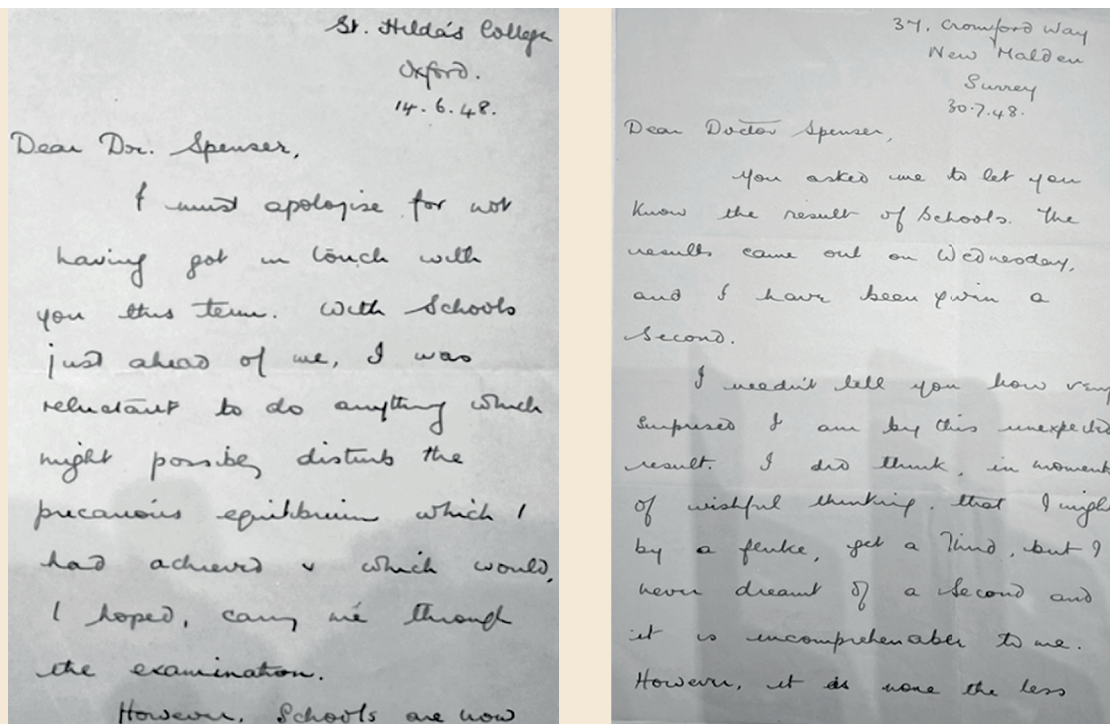 St. Hilda's College
Oxford.
14.6.48.
Dear Dr. Spenser,
I must apologise for not
having got in touch with
you this term. With Schools
just ahead of me, I was
reluctant to do anything which
might possibly disturb the
precarious equilibrium which I
had achieved & which would,
I hoped, carry me through
the examination.
However, Schools are now
37, Cromford Way
New Malden
Surrey
30.7.48.
Dear Doctor Spenser,
You asked me to let you
know the result of Schools. The
results came out on Wednesday,
and I have been given a
Second.
I needn't tell you how very
surprised I am by this unexpected
result. I did think, in moments
of wishful thinking, that I might
by a fluke, get a Third, but I
never dreamt of a Second and
it is incomprehensible to me.
However, it is none the less